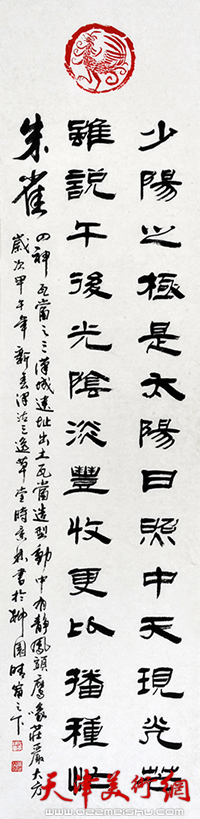 少陽之極是太陽日照中天現光芒
雖說午後光陰淡豐收更比播種忙
朱雀
四神瓦當之三漢城遺址出土瓦當造型動中有靜鳳頭鷹喙莊嚴大方
歲次甲午年新春津沽三逸草堂時景林書於柳園晴窗之下
天津美術網
www.022meishu.com